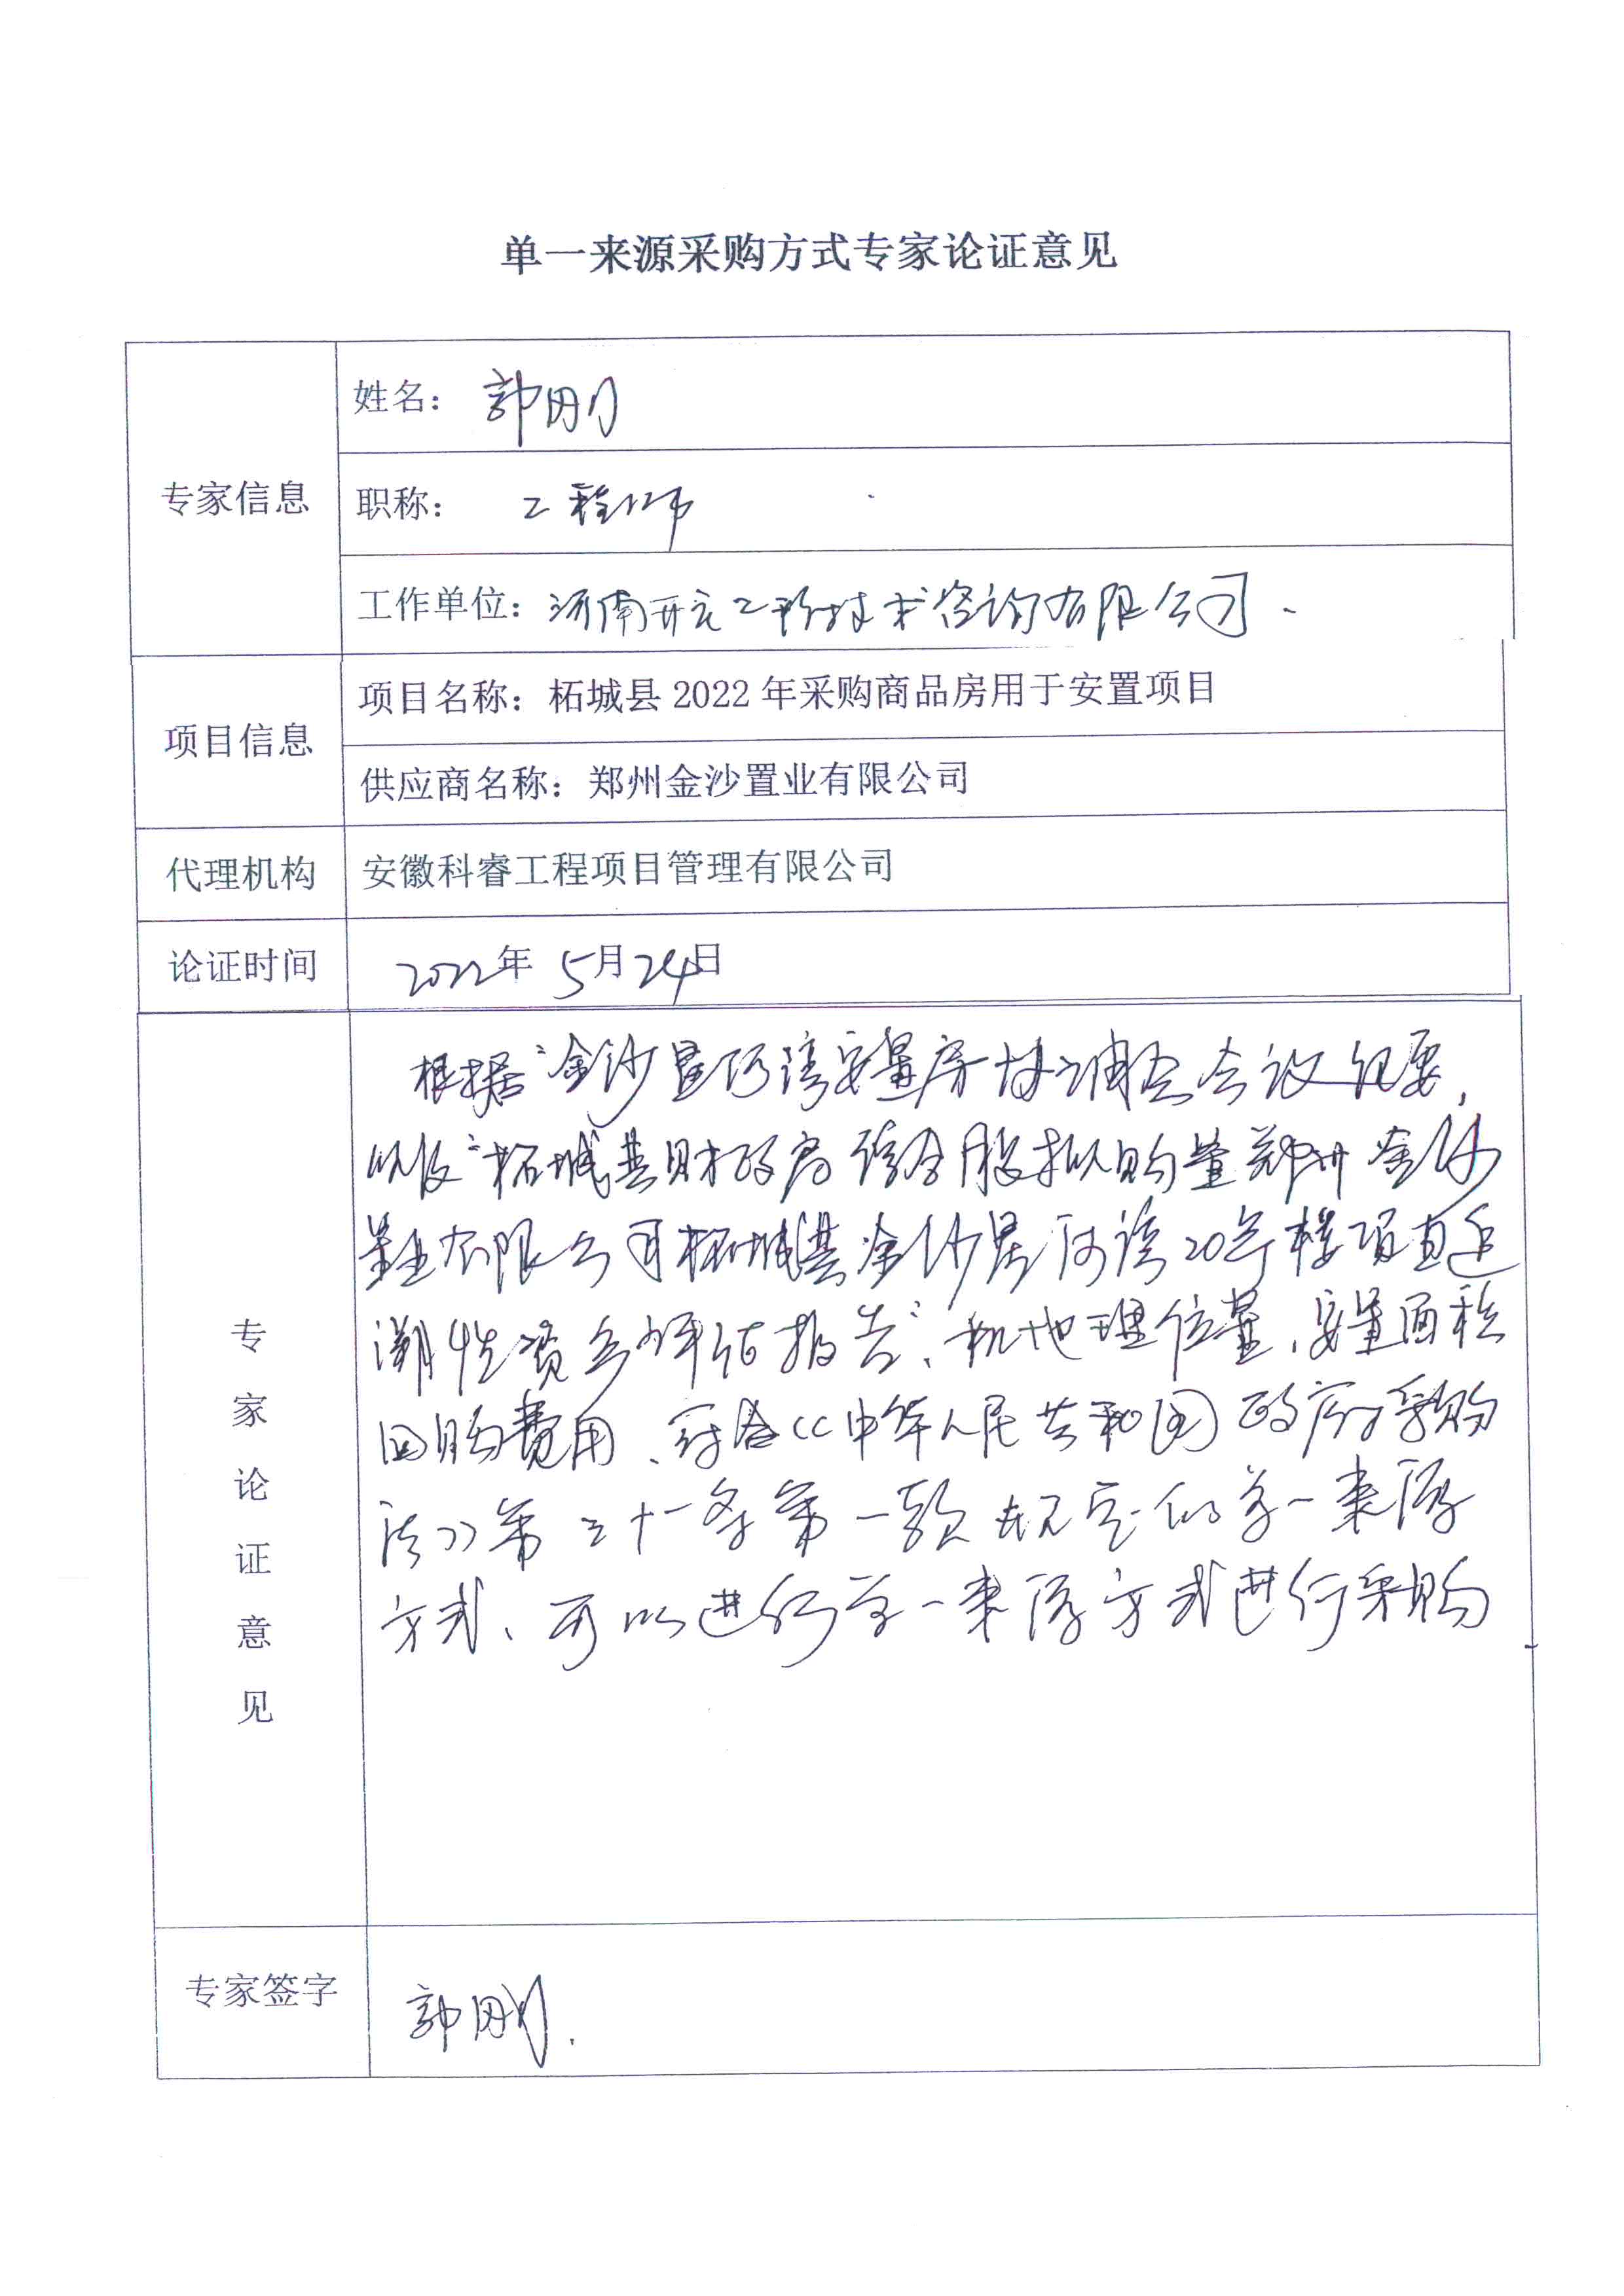 单一来源采购方式专家论证意见
专家信息
姓名：郭刚
职称：工程师
工作单位：河南开元工程技术咨询有限公司
项目信息
项目名称：柘城县2022年采购商品房用于安置项目
供应商名称：郑州金沙置业有限公司
代理机构
安徽科睿工程项目管理有限公司
论证时间
2022年5月24日
专家论证意见
根据“金沙星河湾安置房协调会会议纪要，
以及“柘城县财政局综合股拟购置郑州金沙
置业有限公司柘城县金沙星河湾20号楼项目追
溯性资产评估报告”、地理位置、安置面积
回购费用、符合《中华人民共和国政府采购
法》第三十一条第一款规定的单一来源
方式、可以进行单一来源方式进行采购
专家签字
郭刚